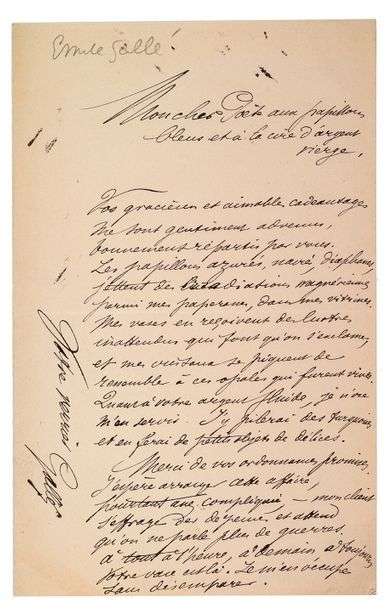 Emile Gallé
Mon cher Poète aux papillons
bleus et à la cire d'argent
vierge,
Vos gracieux et aimables cadeautages
me sont gentiment advenus,
bonnement répartis par vous.
Les papillons azurés, nacré, diaphanes,
jettent des radiations magnésiennes
parmi mes paperasses, dans mes vitrines.
Mes vases en reçoivent des lustres
inattendus qui font qu'on s'exclame,
et mes cristaux se piquent de
ressembler à ces opales qui furent vives.
Quant à votre argent fluide, je n'ose
m'en servir. J'y pilerai des turquoises
et en ferai de petits objets de délices.
Merci de vos ordonnances promises.
J'espère arranger cette affaire,
pourtant assez compliquée — mon client
s'effraye des et attend
qu'on ne parle plus de guerres.
à tout à l'heure, à demain, à toujours
Votre vase est là. Je m'en occupe
sans désemparer.
Votre
Gallé